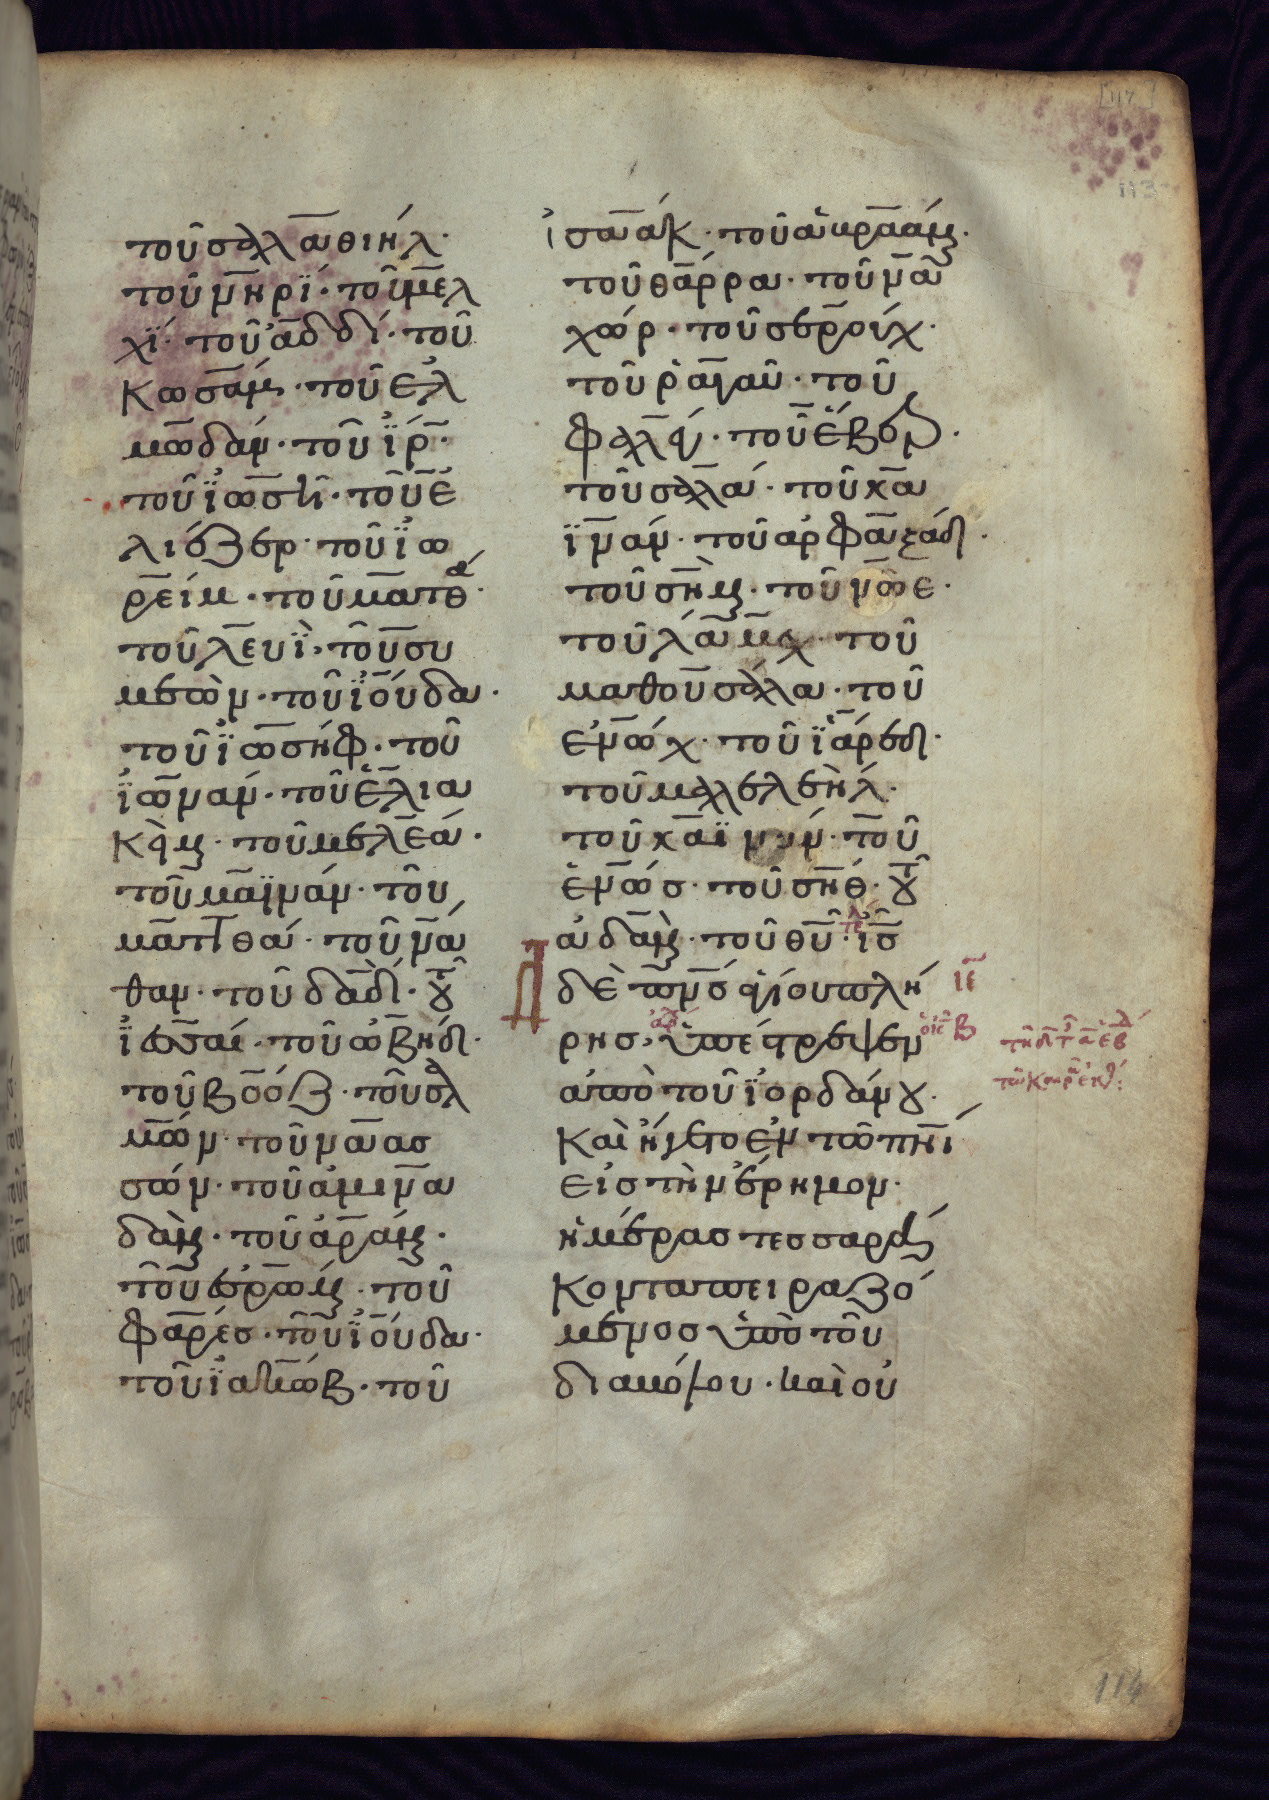 τοῦ σαλαθιήλ·
τοῦ νηρί· τοῦ μελ
χί· τοῦ ἀδδί· τοῦ
κωσάμ· τοῦ ἐλ
μωδάμ· τοῦ ἴρ·
τοῦ ἰωσῆ· τοῦ ἐ
λιέζερ· τοῦ ἰω
ρείμ· τοῦ ματθά·
τοῦ λευὶ· τοῦ συ
μεὼν· τοῦ ἰούδα·
τοῦ ἰωσήφ· τοῦ
ἰωνάν· τοῦ ἐλια
κὴμ· τοῦ μελεά·
τοῦ μαϊνάν· τοῦ
ματταθά· τοῦ νά
θαν· τοῦ δαδ· τοῦ
ἰεσσαί· τοῦ ὠβήδ·
τοῦ βοόζ· τοῦ σαλ
μών· τοῦ ναασ
σών· τοῦ ἀμινα
δὰμ· τοῦ ἀράμ·
τοῦ ἐσρώμ· τοῦ
φαρές· τοῦ ἰούδα·
τοῦ ἰακώβ· τοῦ
ἰσαάκ· τοῦ ἀβραάμ·
τοῦ θάρρα· τοῦ να
χώρ· τοῦ σερούχ·
τοῦ ῥαγαῦ· τοῦ
φαλέγ· τοῦ ἔβερ·
τοῦ σαλά· τοῦ κα
ϊνάν· τοῦ ἀρφαξάδ·
τοῦ σὴμ· τοῦ νῶε·
τοῦ λάμεχ· τοῦ
μαθουσάλα· τοῦ
ἐνώχ· τοῦ ἰάρεδ·
τοῦ μαλελεὴλ·
τοῦ καϊνάν· τοῦ
ἐνώς· τοῦ σήθ· τοῦ
ἀδὰμ· τοῦ θυ· ις
δὲ πνς ἁγίου πλή
ρης, ὑπέστρεψεν
ἀπὸ τοῦ ἰορδάνου·
καὶ ἤγετο ἐν τῷ πνι
εἰς τὴν ἔρημον·
ἡμέρας τεσσαρά
κοντα πειραζό
μενος ὑπὸ τοῦ
διαβόλου· καὶ οὐ
ιε
113
114